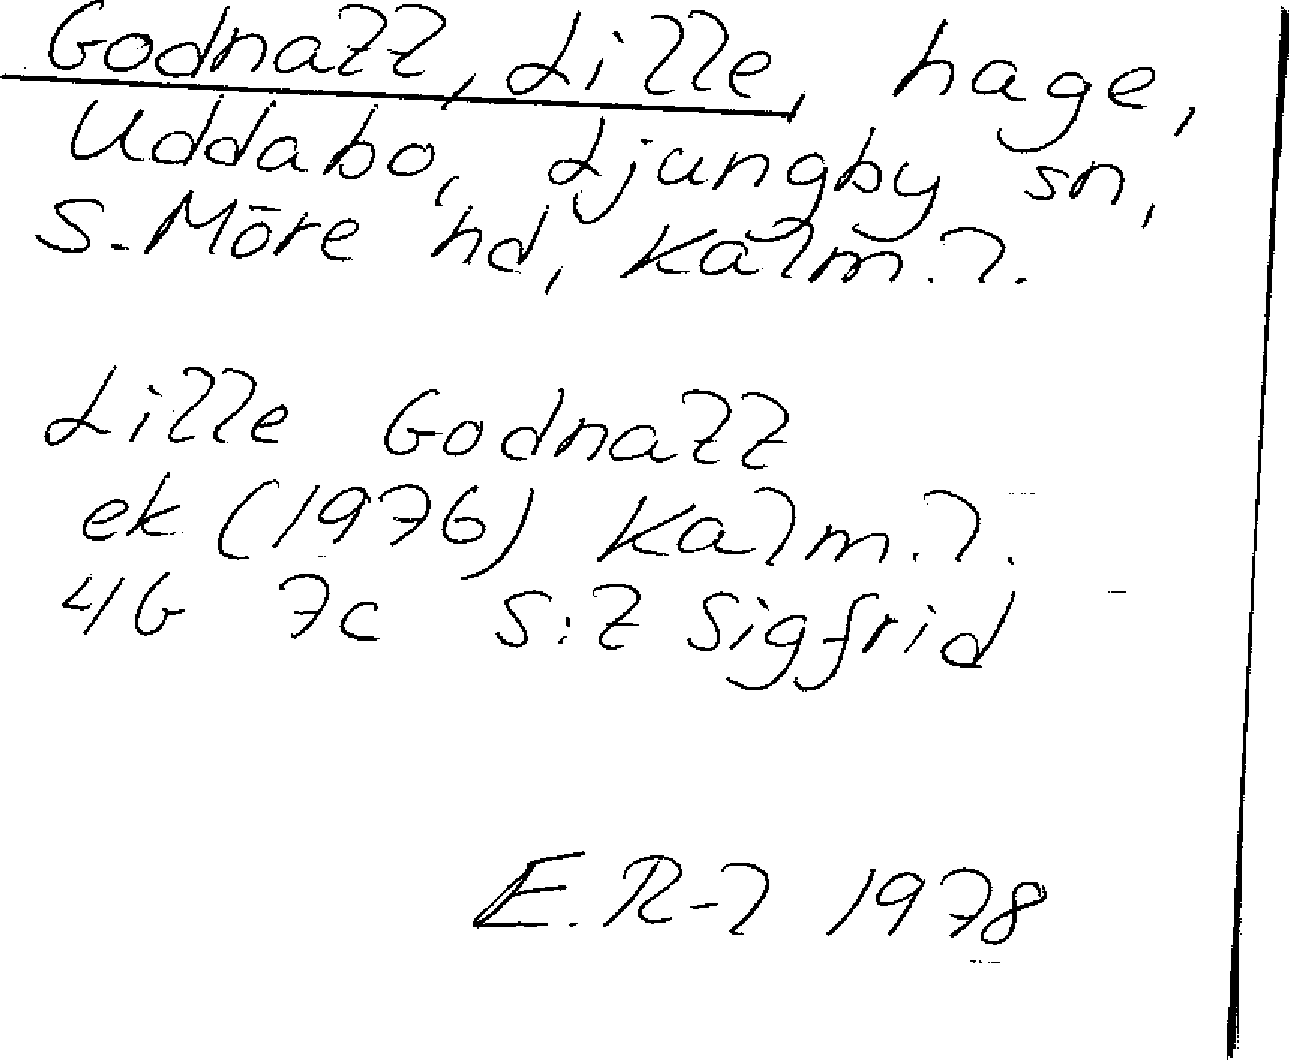 Godnall, Lille, hage,
Uddabo, Ljungby sn,
S. Möre hd, Kalm. l.
Lille Godnall
ek (1976) Kalm. l.
4G 7c S:t Sigfrid
E. R-l 1978